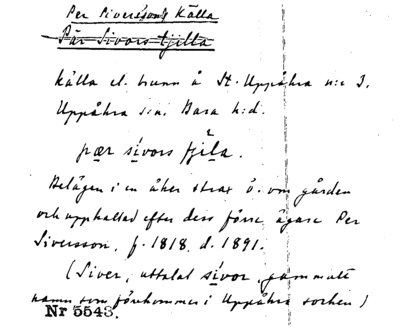 Per Siversson's Källa
Pär Sivors tjilla
Källa el. brunn å St. Uppåkra n:r 3.
Uppåkra s:n. Bara h:d.
pær sívors fjíla.
Belägen i en åker strax ö. om gården
och uppkallad efter dess förre ägare Per
Siversson, f. 1818, d. 1891.
(Siver, uttalat sívor, gammalt
namn som förekommer i Uppåkra socken)
Nr 5543.